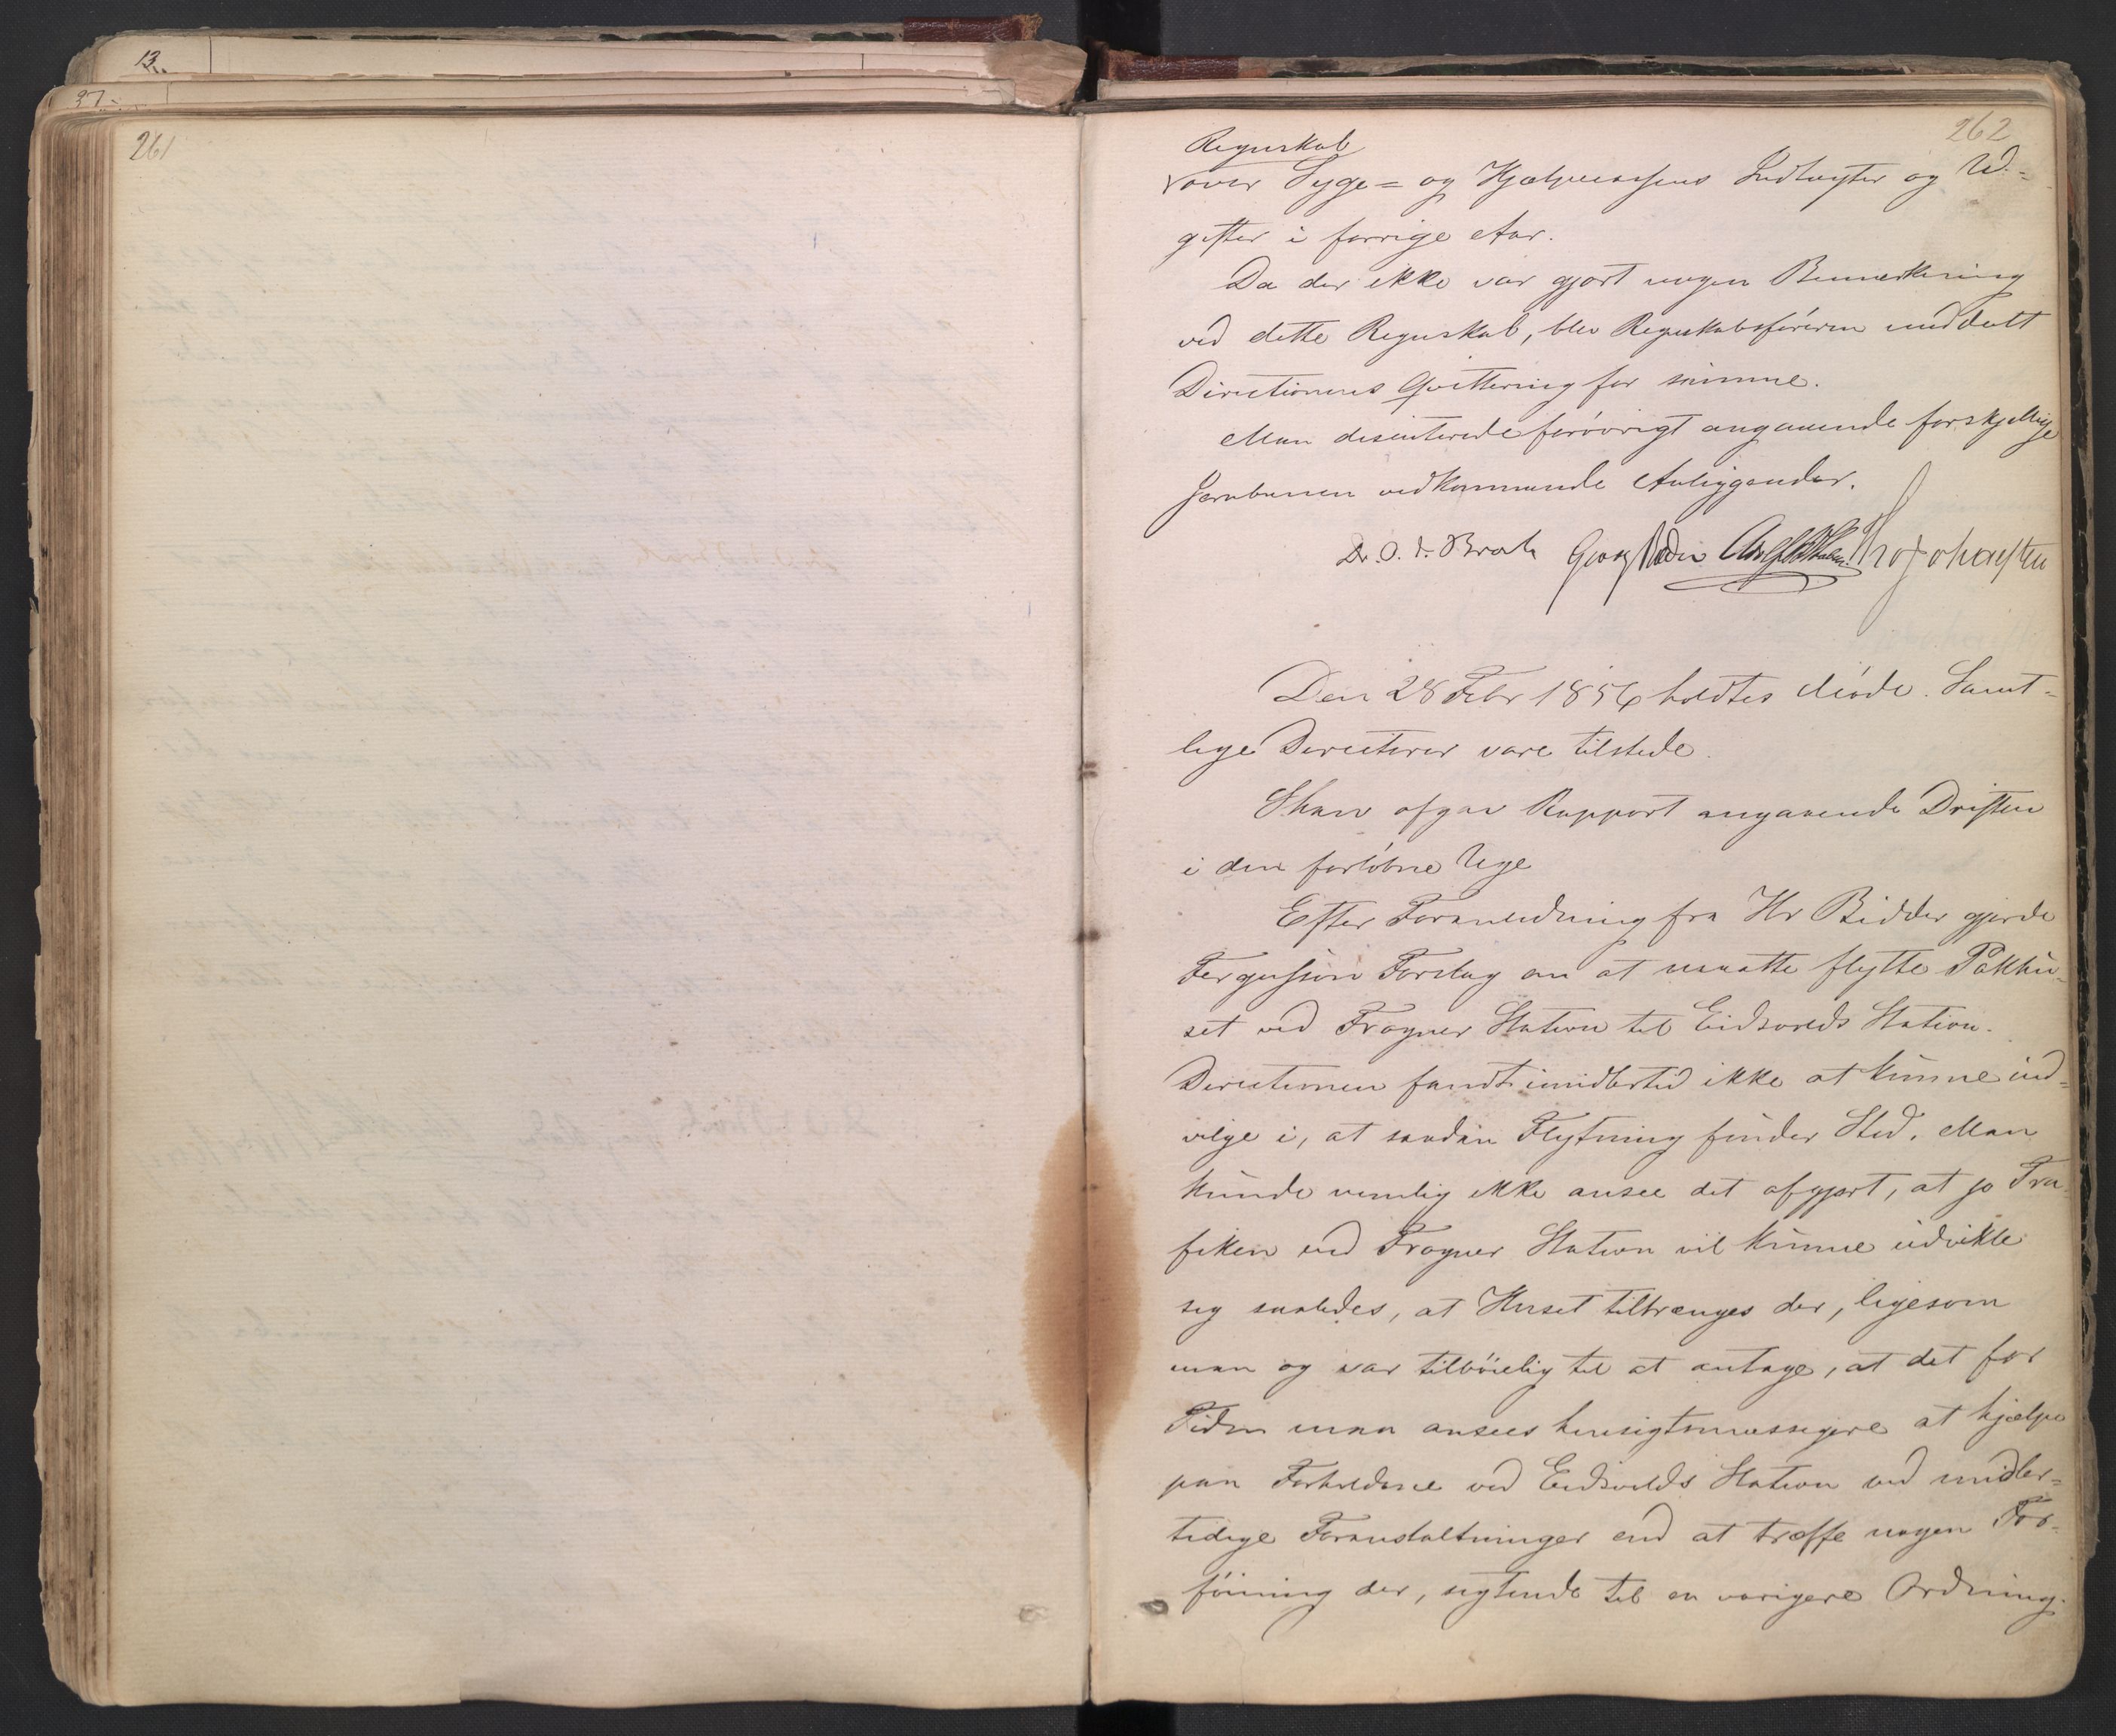 13
37
261
262
Regnskab
over Syge= og Hjælpecassens Indtægter og Ud=
gifter i forrige Aar.
Da der ikke var gjort nogen Bemærkning
ved dette Regnskab, blev Regnskabsføreren meddelt
Directionens Qvittering for samme.
Man discuterede forøvrigt angaaende forskjellige
Jernbanen vedkommende Anliggender.
Dr. O. J. Broch
Den 28 Febr 1856 holdtes Møde. Samt=
lige Directører vare tilstede.
Shaw afgav Rapport angaaende Driften
i den forløbne Uge
Efter Foranledning fra Hr Bidder gjorde
Fergusson Forslag om at maatte flytte Pakhu=
set ved Frogner Station til Eidsvolds Station.
Directionen fandt imidlertid ikke at kunne ind=
vilge i, at saadan Flytning finder Sted. Man
kunde nemlig ikke ansee det afgjort, at jo Tra=
fiken ved Frogner Station vil kunne udvikle
sig saaledes, at Huset tiltrænges der, ligesom
man og var tilbøielig til at antage, at det for
Tiden maa ansees hensigtsmæssigere at hjælpe
paa Forholdene ved Eidsvolds Station ved midler=
tidige Foranstaltninger end at træffe nogen For=
føining der, sigtende til en varigere Ordning.